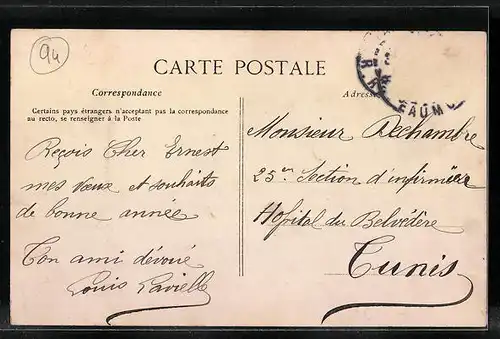 94
CARTE POSTALE
Correspondance
Certains pays étrangers n'acceptant pas la correspondance
au recto, se renseigner à la Poste
Reçois Cher Ernest
mes vœux et souhaits
de bonne année
Ton ami dévoué
Louis
Adresse
EAUM
Monsieur Rechambre
25en Section d'infirmière
Hôpital du Belvédère
Tunis